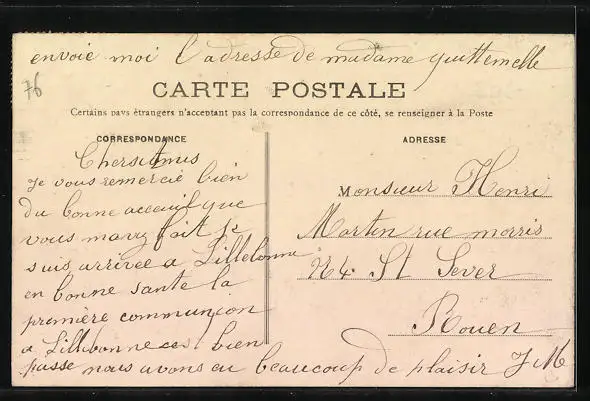 envoie moi l'adresse de madame quittemelle
76
CARTE POSTALE
Certains pays étrangers n'acceptant pas la correspondance de ce côté, se renseigner à la Poste
CORRESPONDANCE
ADRESSE
Chers amis
Je vous remercie bien
du bonne acceuil que
vous mavez fait je
suis arrivee a Lillebonne
en bonne sante la
première communion
a Lillebonne cest bien
passe nous avons eu beaucoup de plaisir J M
Monsieur Henri
Martin rue morris
24 St Sever
Rouen